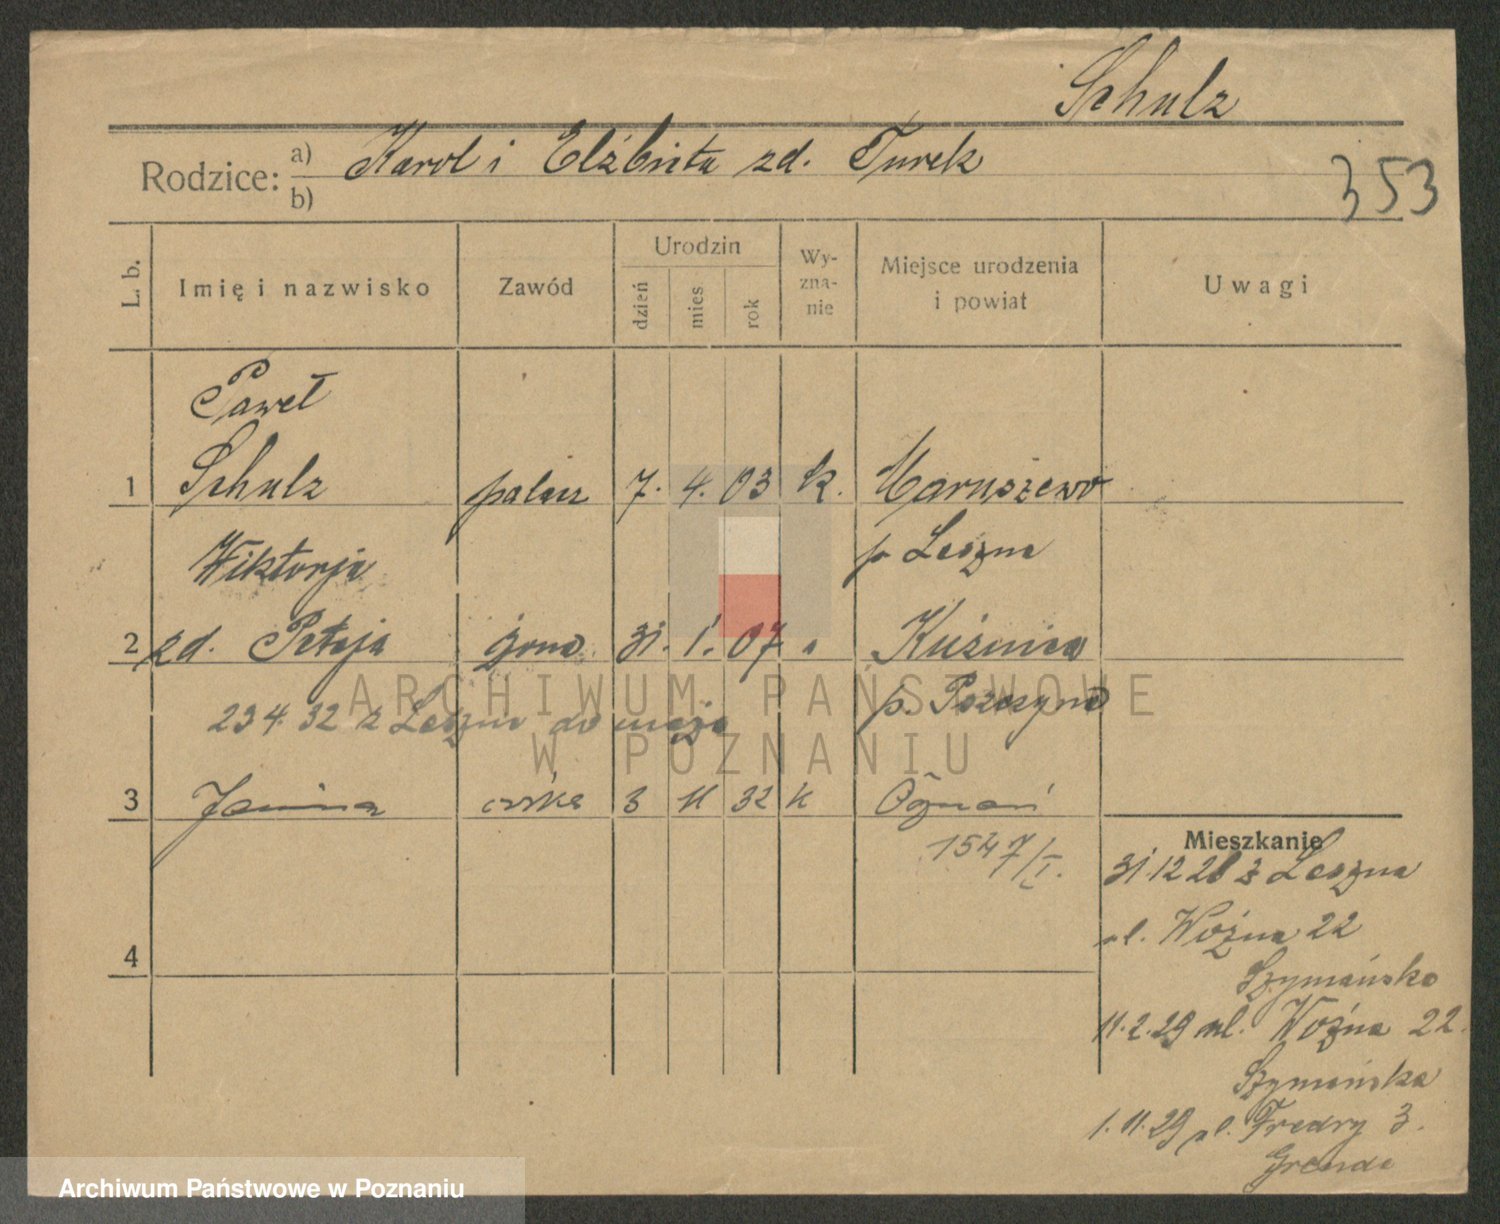 Schulz
Rodzice: a) Karol i Elżbieta zd. Turek
b)
353
L. b.
Imię i nazwisko
Zawód
Urodzin
dzień
mies
rok
Wy-
zna-
nie
Miejsce urodzenia
i powiat
Uwagi
Paweł
1 Schulz palacz 7. 4. 03 k. Maruszewo
Wiktorja p. Leszno
2 zd. Pteja żona 31. 1. 07 " Kuźnica
23 4. 32 z Leszna do męża p.
3 Janina córka 3 11 32 k Poznań
1547/I.
Mieszkanie
31.12 28 z Leszna
ul. Woźna 22
Szymańska
11.2.29 ul. Woźna 22.
Szymańska
1.11.29 ul. Fredry 3.
4
ARCHIWUM PAŃSTWOWE
W POZNANIU
Archiwum Państwowe w Poznaniu